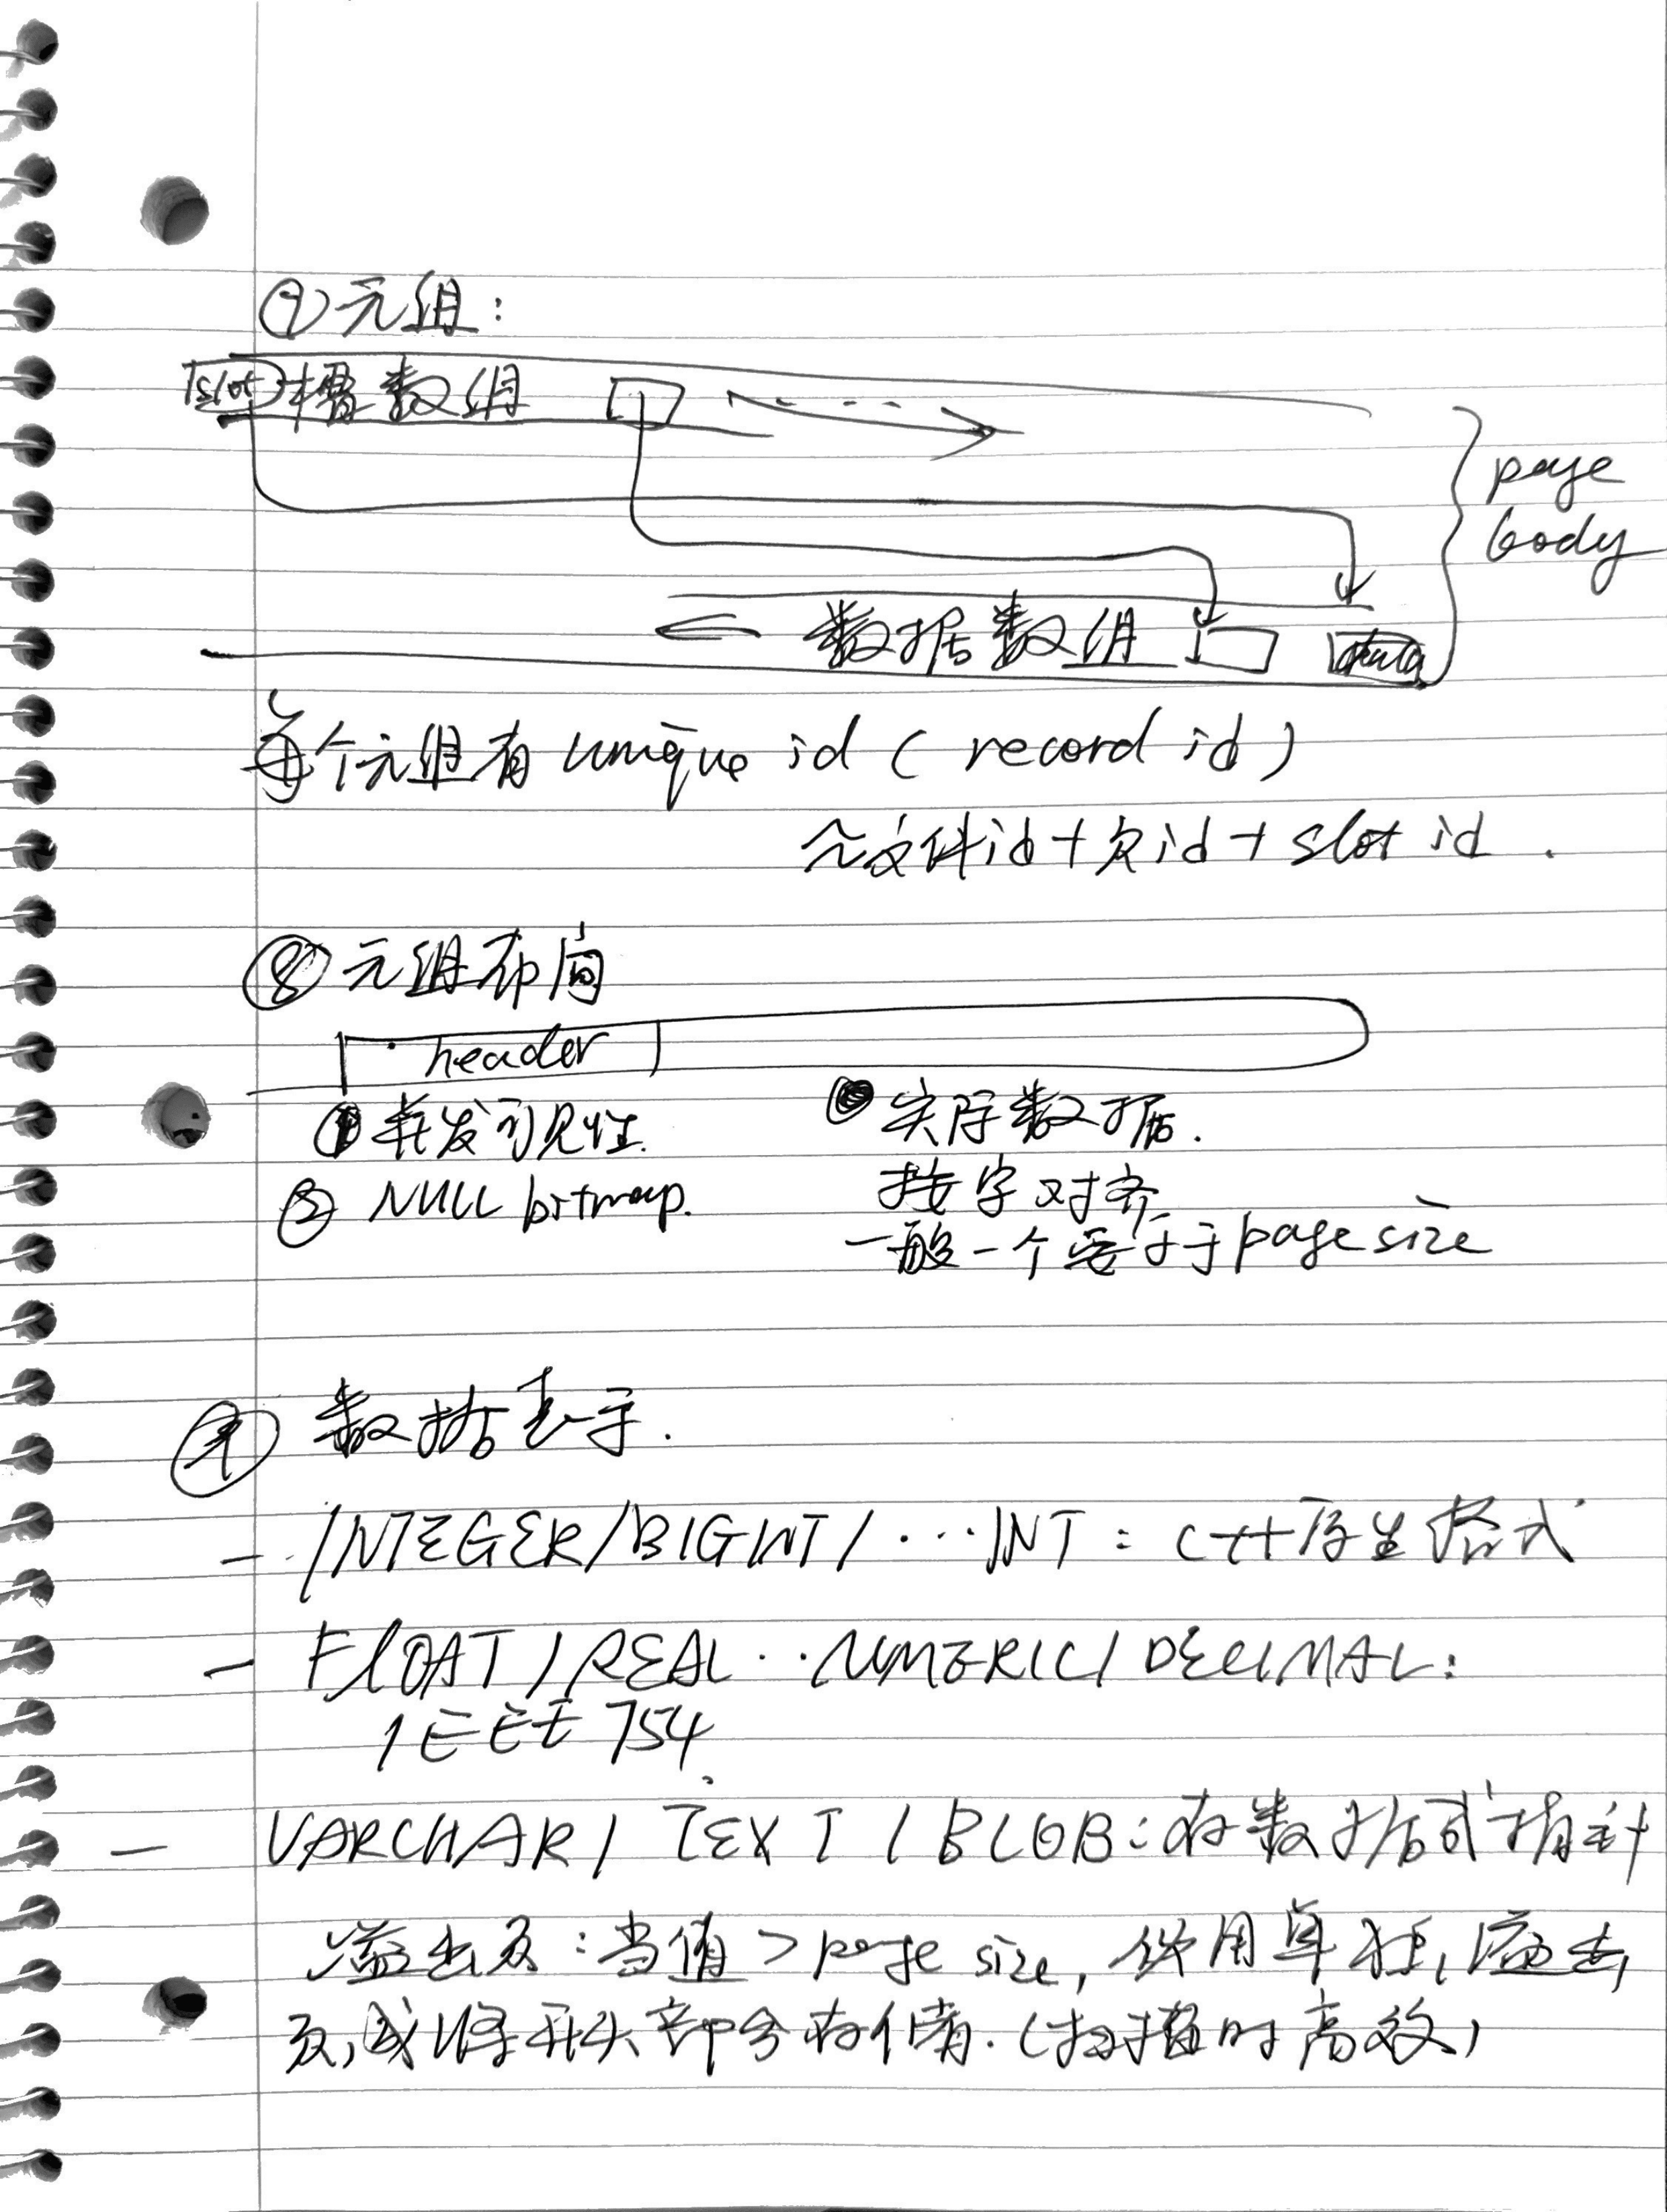 ⑦元组：
slot 槽数组
page
body
← 数据数组 data
每个元组有 unique id ( record id )
文件id + 页id + slot id .
⑧元组布局
header
① 并发可见性.
② NULL bitmap.
实际数据.
按字对齐
一般一个要小于 page size
数据表示.
- INTEGER/BIGINT/...INT : C++原生格式
- FLOAT/REAL..NUMERIC/DECIMAL:
IEEE 754.
- VARCHAR/ TEXT / BLOB: 存数据或指针
溢出页：当值 > page size, 使用单独溢出
页,或将开头部分存储.(扫描时高效)